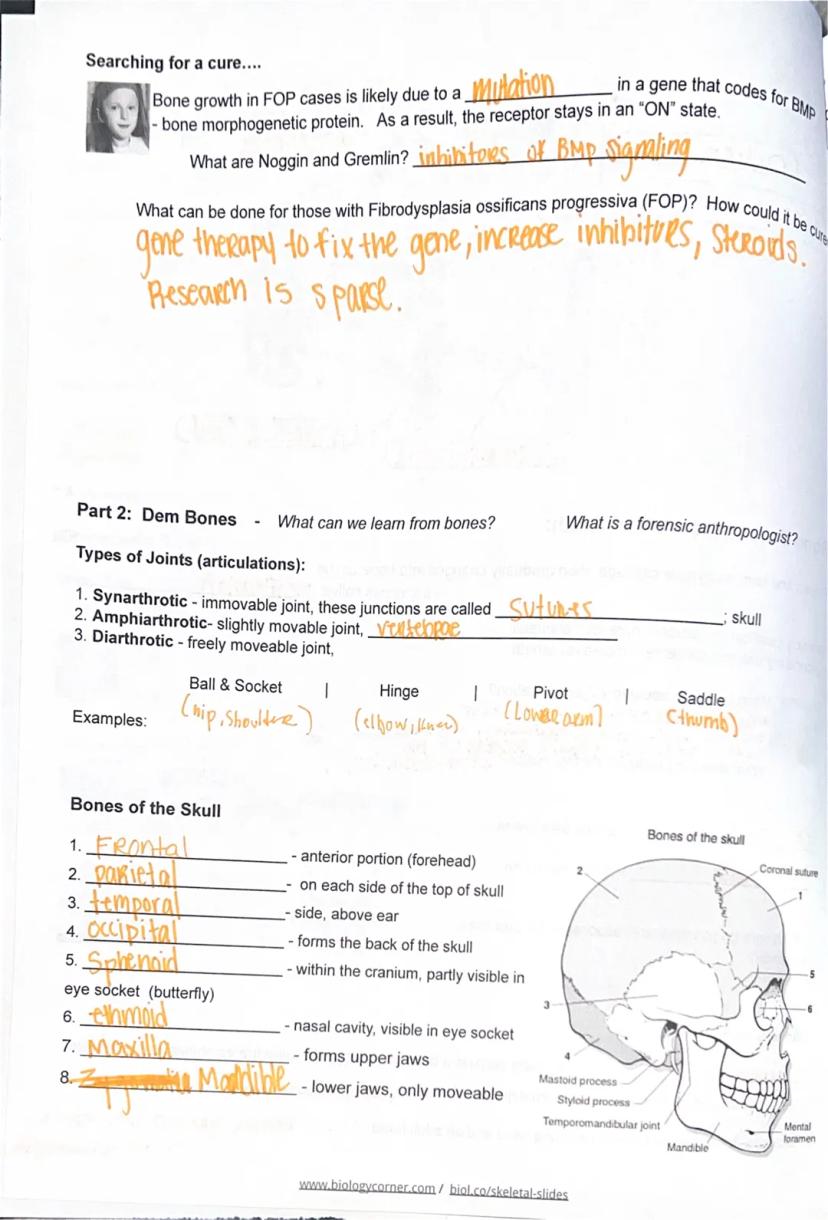 Searching for a cure....
Bone growth in FOP cases is likely due to a mutation in a gene that codes for BMP
- bone morphogenetic protein. As a result, the receptor stays in an "ON" state.
What are Noggin and Gremlin? inhibitors of BMP signaling
What can be done for those with Fibrodysplasia ossificans progressiva (FOP)? How could it be cure
gene therapy to fix the gene, increase inhibitors, steroids.
Research is sparse.
Part 2: Dem Bones - What can we learn from bones? What is a forensic anthropologist?
Types of Joints (articulations):
1. Synarthrotic - immovable joint, these junctions are called sutures ; skull
2. Amphiarthrotic- slightly movable joint, vertebrae
3. Diarthrotic - freely moveable joint,
Ball & Socket | Hinge | Pivot | Saddle
Examples: (hip, shoulder) (elbow, knee) (Lower arm) (thumb)
Bones of the Skull
1. Frontal - anterior portion (forehead)
2. parietal - on each side of the top of skull
3. temporal - side, above ear
4. occipital - forms the back of the skull
5. Sphenoid - within the cranium, partly visible in
eye socket (butterfly)
6. ethmoid - nasal cavity, visible in eye socket
7. Maxilla - forms upper jaws
8. Mandible - lower jaws, only moveable
Bones of the skull
Coronal suture
2
1
5
3
6
4
Mastoid process
Styloid process
Temporomandibular joint
Mandible
Mental
foramen
www.biologycorner.com / biol.co/skeletal-slides